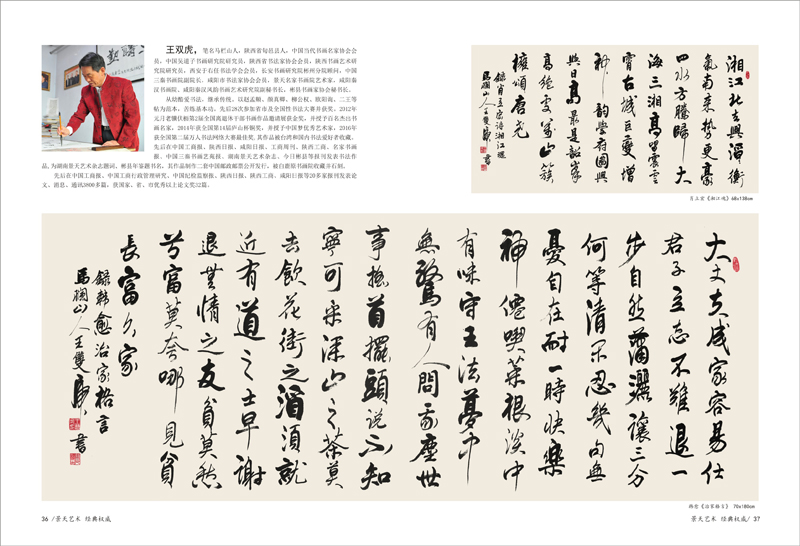 王双虎，笔名马栏山人，陕西省旬邑县人，中国当代书画名家协会会
员，中国吴道子书画研究院研究员，陕西省书法家协会会员，陕西书画艺术研
究院研究员，西安于右任书法学会会员，长安书画研究院彬州分院顾问，中国
三秦书画院副院长，咸阳市书法家协会会员，景天名家书画院艺术家，咸阳秦
汉书画院、咸阳秦汉风韵书画艺术研究院副秘书长，彬县书画家协会秘书长。
从幼酷爱书法，继承传统，以赵孟頫、颜真卿、柳公权、欧阳询、二王等
帖为范本，苦练基本功。先后28次参加省市及全国性书法大赛并获奖。2012年
元月老骥伏枥第2届全国离退休干部书画作品邀请展获金奖，并授予百名杰出书
画名家。2014年获全国第11届庐山杯铜奖，并授予中国梦优秀艺术家。2016年
获全国第二届万人书法网络大赛最佳奖，其作品被台湾和国内书法爱好者收藏。
先后在中国工商报、陕西日报、咸阳日报、工商周刊、陕西工商、名家书画
报、中国三秦书画艺苑报、湖南景天艺术杂志、今日彬县等报刊发表书法作
品，为湖南景天艺术杂志题词、彬县年鉴题书名，其作品制作二套中国邮政邮票公开发行，被白鹿原书画院收藏并石刻。
先后在中国工商报、中国工商行政管理研究、中国纪检监察报、陕西日报、陕西工商、咸阳日报等20多家报刊发表论
文、消息、通讯3800多篇，获国家、省、市优秀以上论文奖32篇。
湘江北去興潭衡
氣南来勢更豪
四水方騰歸大
海三湘高留震雲
霄古城巨變增
神韵譽府國興
與日高最是韶峯
高絶處萬山簇
擁頌唐尧
馬欄山人王雙虎書
肖三宏《湘江魂》68x138cm
大丈夫成家容易仕
君子立志不難退一
步自然蕭灑讓三分
何等清闲忍幾句無
憂自在耐一時快樂
神僊喫菜根淡中
有味守王法夢中
無驚有人問我塵世
事摇首擺頭说不知
寧可采深山之茶莫
去飲花街之酒須就
近有道之士早谢
退無情之友貧莫愁
兮富莫夸哪見貧
長富久家
録韩愈治家格言
馬欄山人王雙虎書
韩愈《治家格言》 70x180cm
36 /景天艺术 经典权威
景天艺术 经典权威/ 37